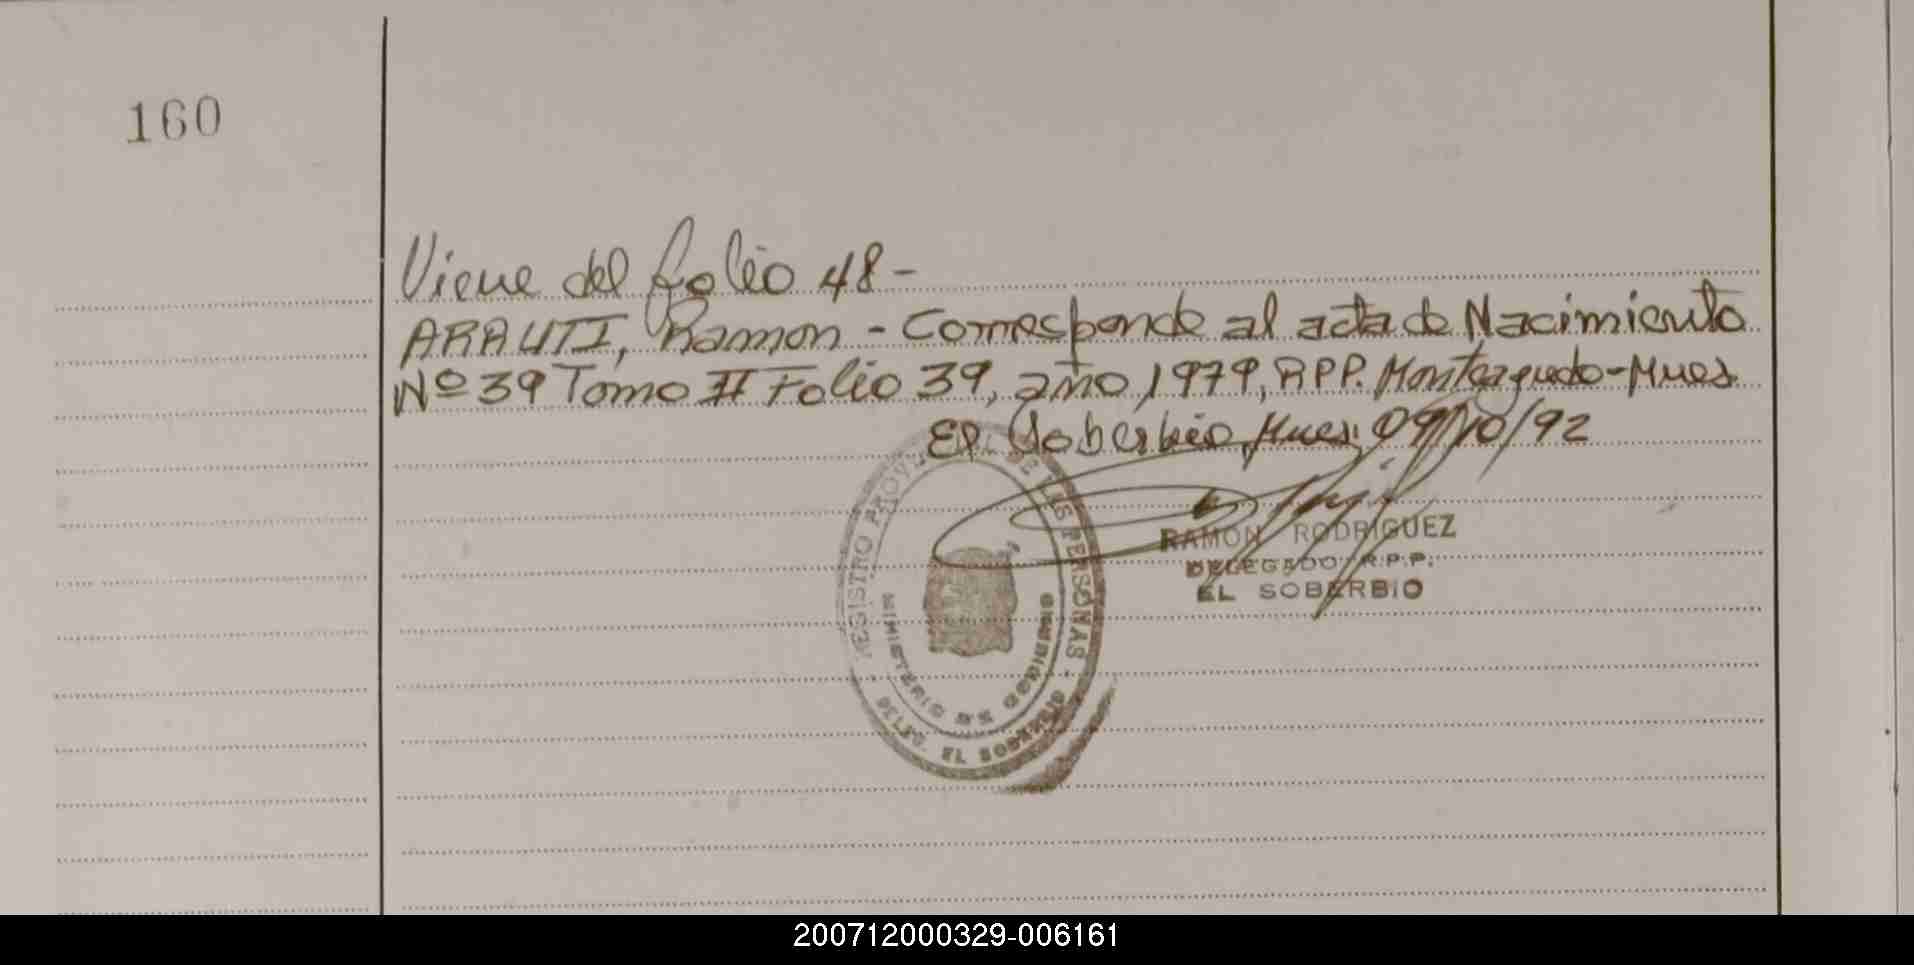 160
Viene del folio 48-
ARAUTI, Ramon - Corresponde al acta de Nacimiento
Nº 39 Tomo II Folio 39, año 1979, RPP. Monteagudo-Mnes.
El Soberbio, Mnes. 09/10/92
RAMON RODRIGUEZ
DELEGADO R.P.P.
EL SOBERBIO
REGISTRO PROV. DE LAS PERSONAS
MINISTERIO DE GOBIERNO
EL SOBERBIO
200712000329-006161